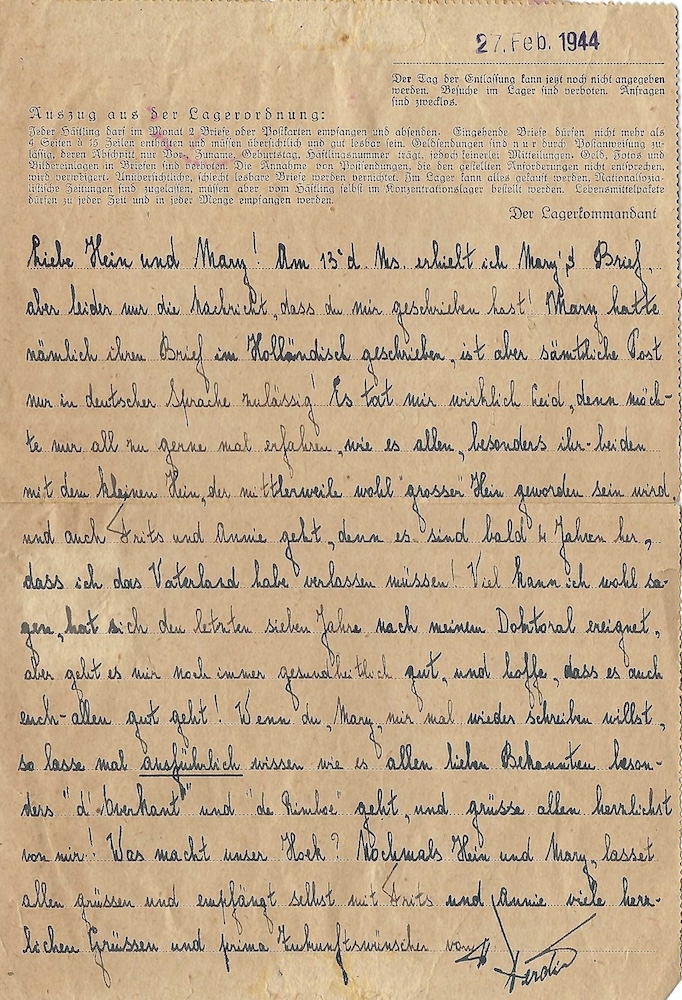 27. Feb. 1944
Der Tag der Entlassung kann jetzt noch nicht angegeben
werden. Besuche im Lager sind verboten. Anfragen
sind zwecklos.
Auszug aus der Lagerordnung:
Jeder Häftling darf im Monat 2 Briefe oder Postkarten empfangen und absenden. Eingehende Briefe dürfen nicht mehr als
4 Seiten à 15 Zeilen enthalten und müssen übersichtlich und gut lesbar sein. Geldsendungen sind nur durch Postanweisung zu-
lässig, deren Abschnitt nur Vor-, Zuname, Geburtstag, Häftlingsnummer trägt, jedoch keinerlei Mitteilungen. Geld, Fotos und
Bildereinlagen in Briefen sind verboten. Die Annahme von Postsendungen, die den gestellten Anforderungen nicht entsprechen,
wird verweigert. Unübersichtliche, schlecht lesbare Briefe werden vernichtet. Im Lager kann alles gekauft werden. Nationalsozia-
listische Zeitungen sind zugelassen, müssen aber vom Häftling selbst im Konzentrationslager bestellt werden. Lebensmittelpakete
dürfen zu jeder Zeit und in jeder Menge empfangen werden.
Der Lagerkommandant
Liebe Hein und Mary! Am 13 d. Ms. erhielt ich Mary's Brief,
aber leider nur die Nachricht, dass du mir geschrieben hast! Mary hatte
nämlich ihren Brief im Holländisch geschrieben, ist aber sämtliche Post
nur in deutscher Sprache zulässig! Es tat mir wirklich Leid, denn möch-
te nur all zu gerne mal erfahren, wie es allen, besonders ihr-beiden
mit dem kleinen Hein, der mittlerweile wohl "grosser" Hein geworden sein wird,
und auch Frits und Annie geht, denn es sind bald 4 Jahren her,
dass ich das Vaterland habe verlassen müssen! Viel kann ich wohl sa-
gen, hat sich den letzten sieben Jahre nach meinem Doktoral ereignet,
aber geht es mir noch immer gesundheitlich gut, und hoffe, dass es auch
euch-allen gut geht! Wenn du, Mary, mir mal wieder schreiben willst,
so lasse mal ausführlich wissen wie es allen lieben Bekannten beson-
ders "d' Overkant" und "de Rimboe" geht, und grüsse allen herzlichst
von mir! Was macht unser Hoek? Nochmals Hein und Mary, lasset
allen grüssen und empfängt selbst mit Frits und Annie viele herz-
lichen Grüssen und prima Zukunftswünscher von